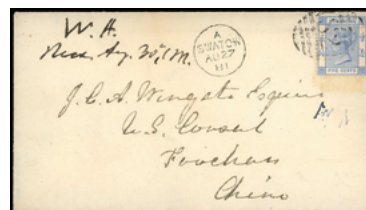 W. H.
Recd Aug. 30, 1M.
A
SWATOW
AU 27
81
FIVE CENTS
J. C. A. Wingate Esquire
U.S. Consul
Foochow
China